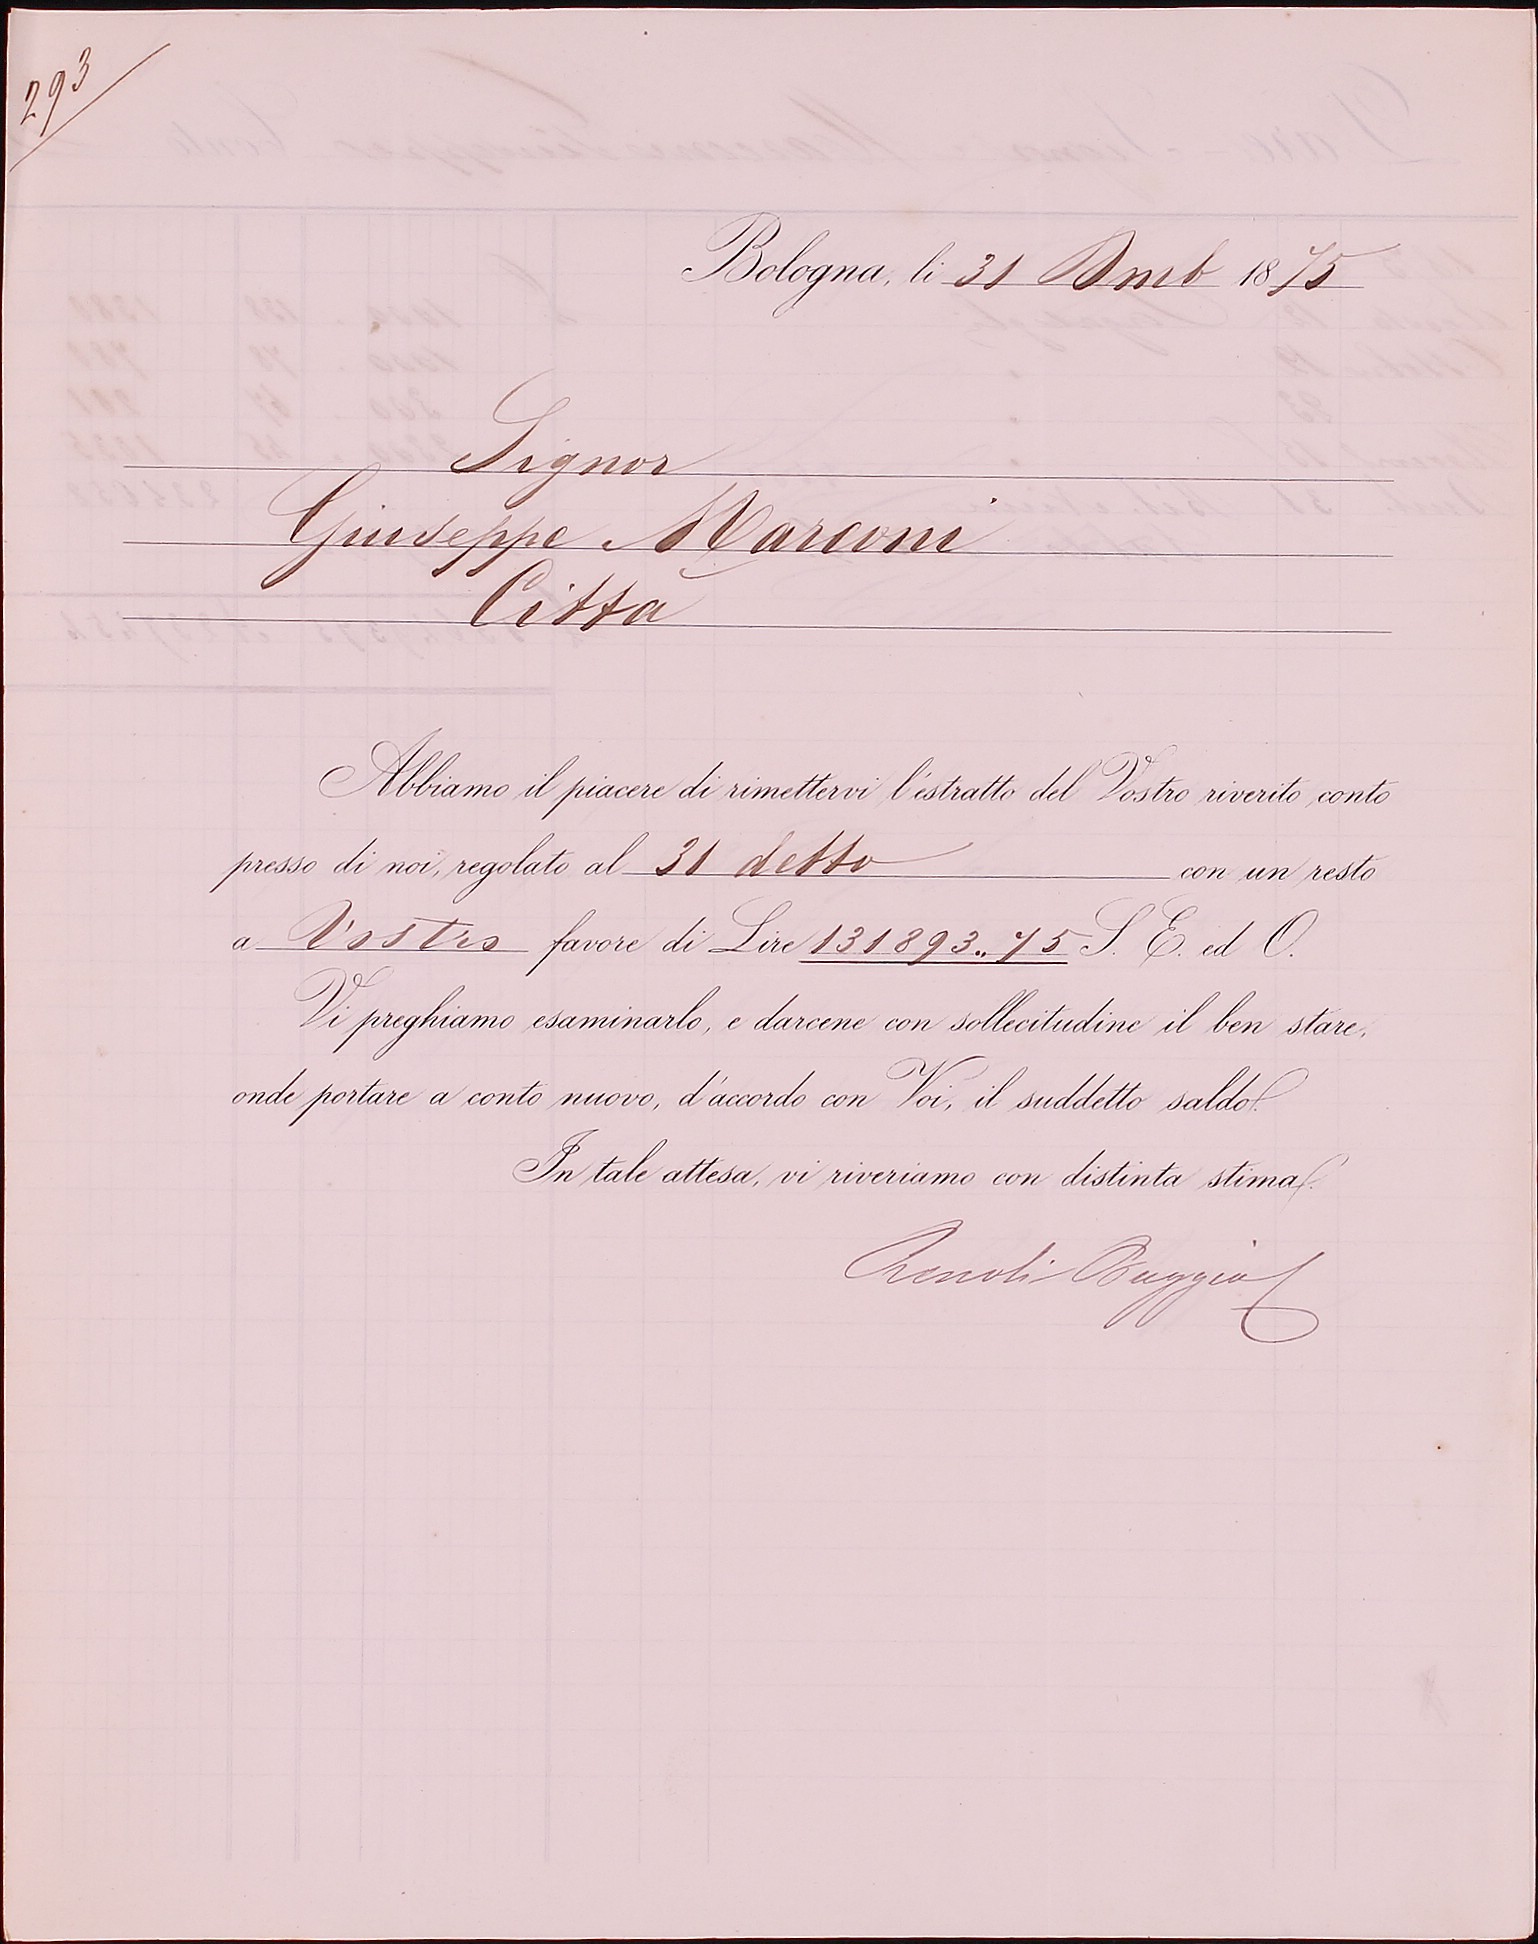 293
Bologna, li 31 Dmb 1875
Signor
Giuseppe Marconi
Città
Abbiamo il piacere di rimettervi l'estratto del Vostro riverito conto
presso di noi, regolato al 31 detto con un resto
a Vostro favore di Lire 131893.,75 S. E. ed O.
Vi preghiamo esaminarlo, e darcene con sollecitudine il ben stare,
onde portare a conto nuovo, d'accordo con Voi, il suddetto saldo.
In tale attesa, vi riveriamo con distinta stima.
Renoli Buggio